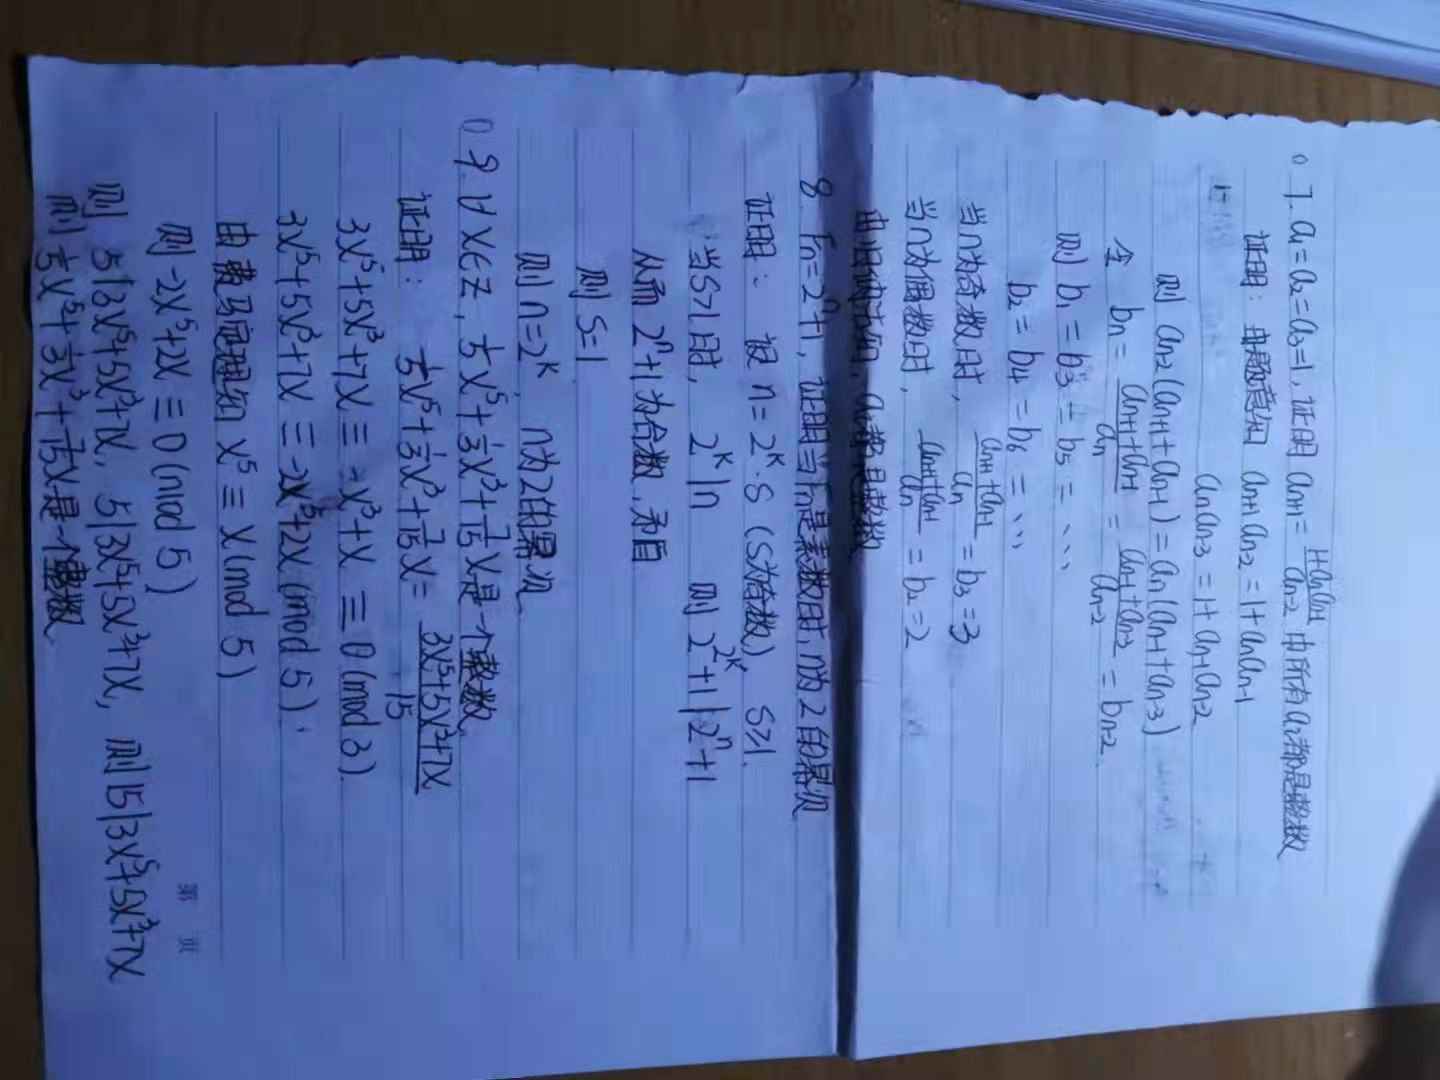 7. a₁=a₂=a₃=1, 证明 aₙ₊₁ = (1+aₙaₙ₋₁)/aₙ₋₂ 中所有aᵢ都是整数
证明: 由题意知 aₙ₊₁aₙ₋₂=1+aₙaₙ₋₁
aₙaₙ₋₃=1+aₙ₋₁aₙ₋₂
则 aₙ₋₂(aₙ₊₁+aₙ₋₁)=aₙ(aₙ₋₁+aₙ₋₃)
令 bₙ = (aₙ₊₁+aₙ₋₁)/aₙ = (aₙ₋₁+aₙ₋₃)/aₙ₋₂ = bₙ₋₂.
则 b₁=b₃=b₅=····
b₂=b₄=b₆=···
当n为奇数时, (aₙ₊₁+aₙ₋₁)/aₙ = b₃=3
当n为偶数时, (aₙ₊₁+aₙ₋₁)/aₙ = b₂=2
由归纳法知, aᵢ都是整数
8. Fₙ=2ⁿ+1, 证明当Fₙ是素数时, n为2的幂次
证明: 设 n=2ᵏ·s (s为奇数), s≥1.
当s>1时, 2ᵏ|n 则 2^(2ᵏ)+1|2ⁿ+1
从而 2ⁿ+1为合数, 矛盾
则 s=1
则 n=2ᵏ, n为2的幂次
9. ∀x∈Z, 1/5x⁵+1/3x³+7/15x是一个整数
证明: 1/5x⁵+1/3x³+7/15x = (3x⁵+5x³+7x)/15
3x⁵+5x³+7x ≡ -x³+x ≡ 0 (mod 3).
3x⁵+5x³+7x ≡ -2x⁵+2x (mod 5).
由费马定理知 x⁵ ≡ x (mod 5)
则 -2x⁵+2x ≡ 0 (mod 5)
则 5|3x⁵+5x³+7x, 5|3x⁵+5x³+7x, 则15|3x⁵+5x³+7x
则 1/5x⁵+1/3x³+7/15x是一个整数
第 页